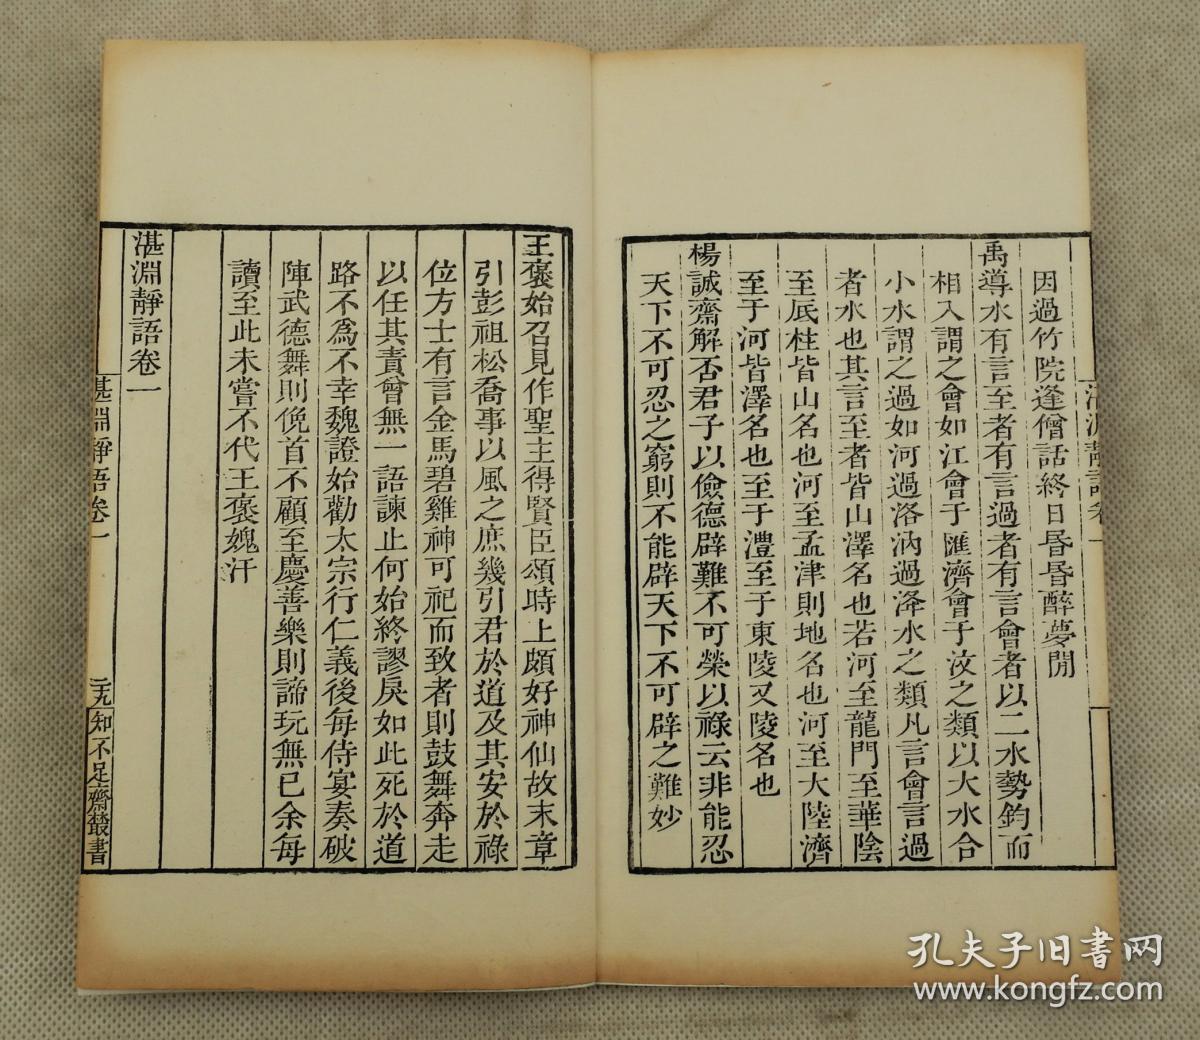 因過竹院逢僧話終日昬昬醉夢閒
禹導水有言至者有言過者有言會者以二水勢鈞而
相入謂之會如江會于匯濟會于汶之類以大水合
小水謂之過如河過洛汭過洚水之類凡言會言過
者水也其言至者皆山澤名也若河至龍門至華陰
至厎柱皆山名也河至孟津則地名也河至大陸濟
至于河皆澤名也至于澧至于東陵又陵名也
楊誠齋解否君子以儉德辟難不可榮以祿云非能忍
天下不可忍之窮則不能辟天下不可辟之難妙
王褒始召見作聖主得賢臣頌時上頗好神仙故末章
引彭祖松喬事以風之庶幾引君於道及其安於祿
位方士有言金馬碧雞神可祀而致者則鼓舞奔走
以任其責曾無一語諫止何始終謬戾如此死於道
路不爲不幸魏證始勸太宗行仁義後每侍宴奏破
陣武德舞則俛首不顧至慶善樂則諦玩無已余每
讀至此未嘗不代王褒媿汗
湛淵靜語卷一
湛淵靜語卷一
二十九
知不足齋叢書
孔夫子旧书网
www.kongfz.com